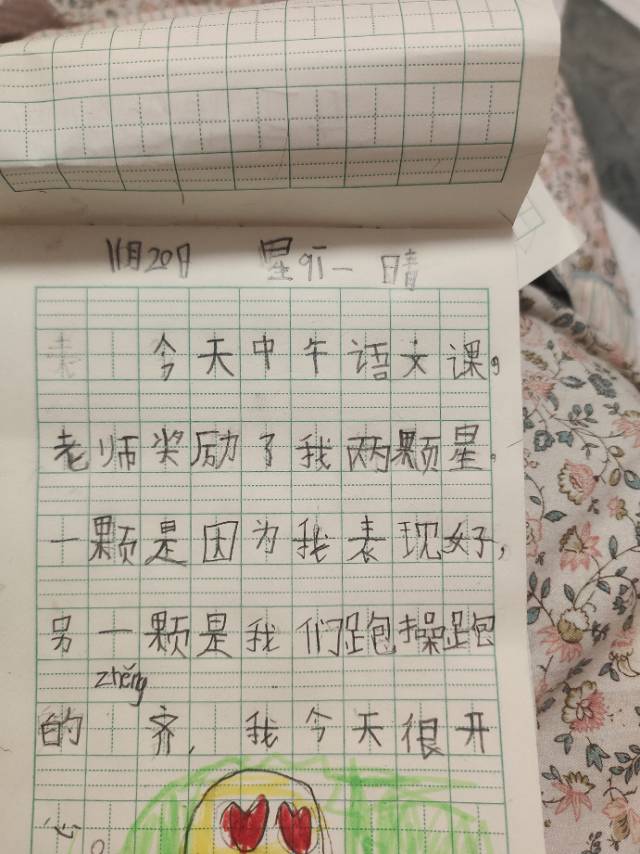 11月20日 星期一 晴
今天中午语文课,
老师奖励了我两颗星。
一颗是因为我表现好,
另一颗是我们跑操跑
zhěng
的 齐,我今天很开
心。